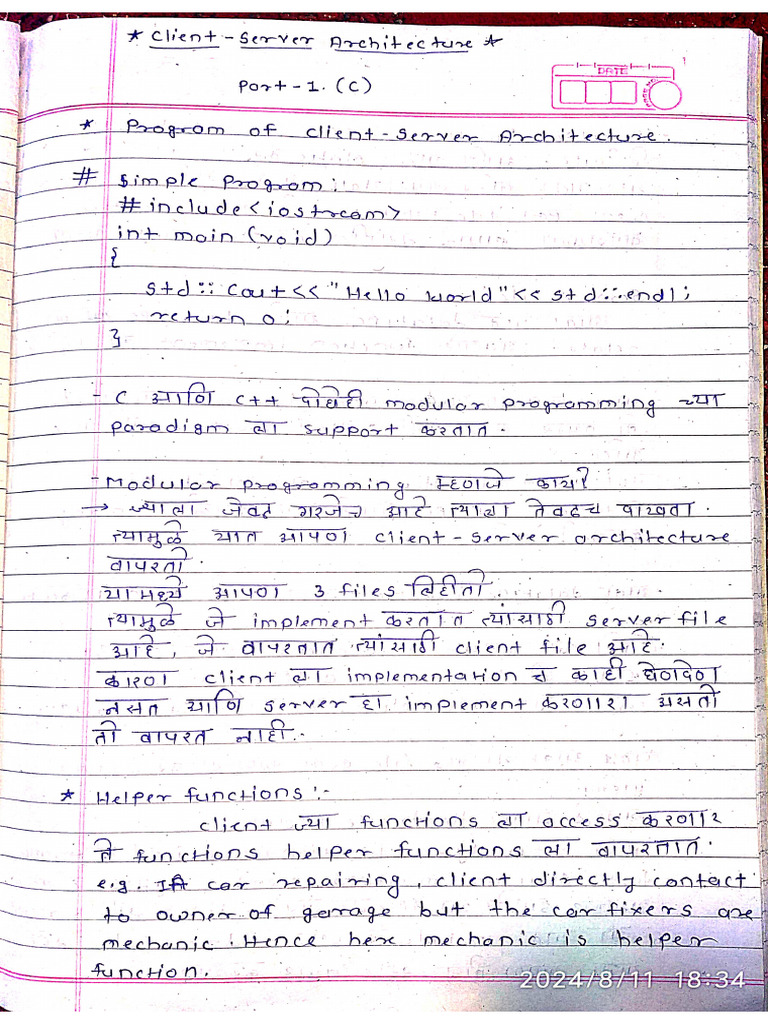 * Client-Server Architecture *
Part-1. (C)
DATE
* Program of client-server Architecture.
# Simple Program:
#include<iostream>
int main (void)
{
std::cout<<"Hello World"<<std::endl;
return 0;
}
- C आणि C++ दोघेही modular programming च्या
paradigm ला support करतात.
- Modular programming म्हणजे काय?
→ ज्याला जेवढ गरजेच आहे त्याला तेवढच दाखवता.
त्यामुळे यात आपण client-server architecture
वापरतो.
यामध्ये आपण 3 files लिहीतो.
त्यामुळे जे implement करतात त्यांसाठी server file
आहे, जे वापरतात त्यांसाठी client file आहे.
कारण client ला implementation च काही घेणदेण
नसत आणि server हा implement करणारा असतो
तो वापरत नाही.
* Helper functions:-
client ज्या functions ला access करणार
ते functions helper functions ला वापरतात.
e.g. In car repairing, client directly contact
to owner of garage but the car fixers are
mechanic. Hence here mechanic is helper
function.
2024/8/11 18:34